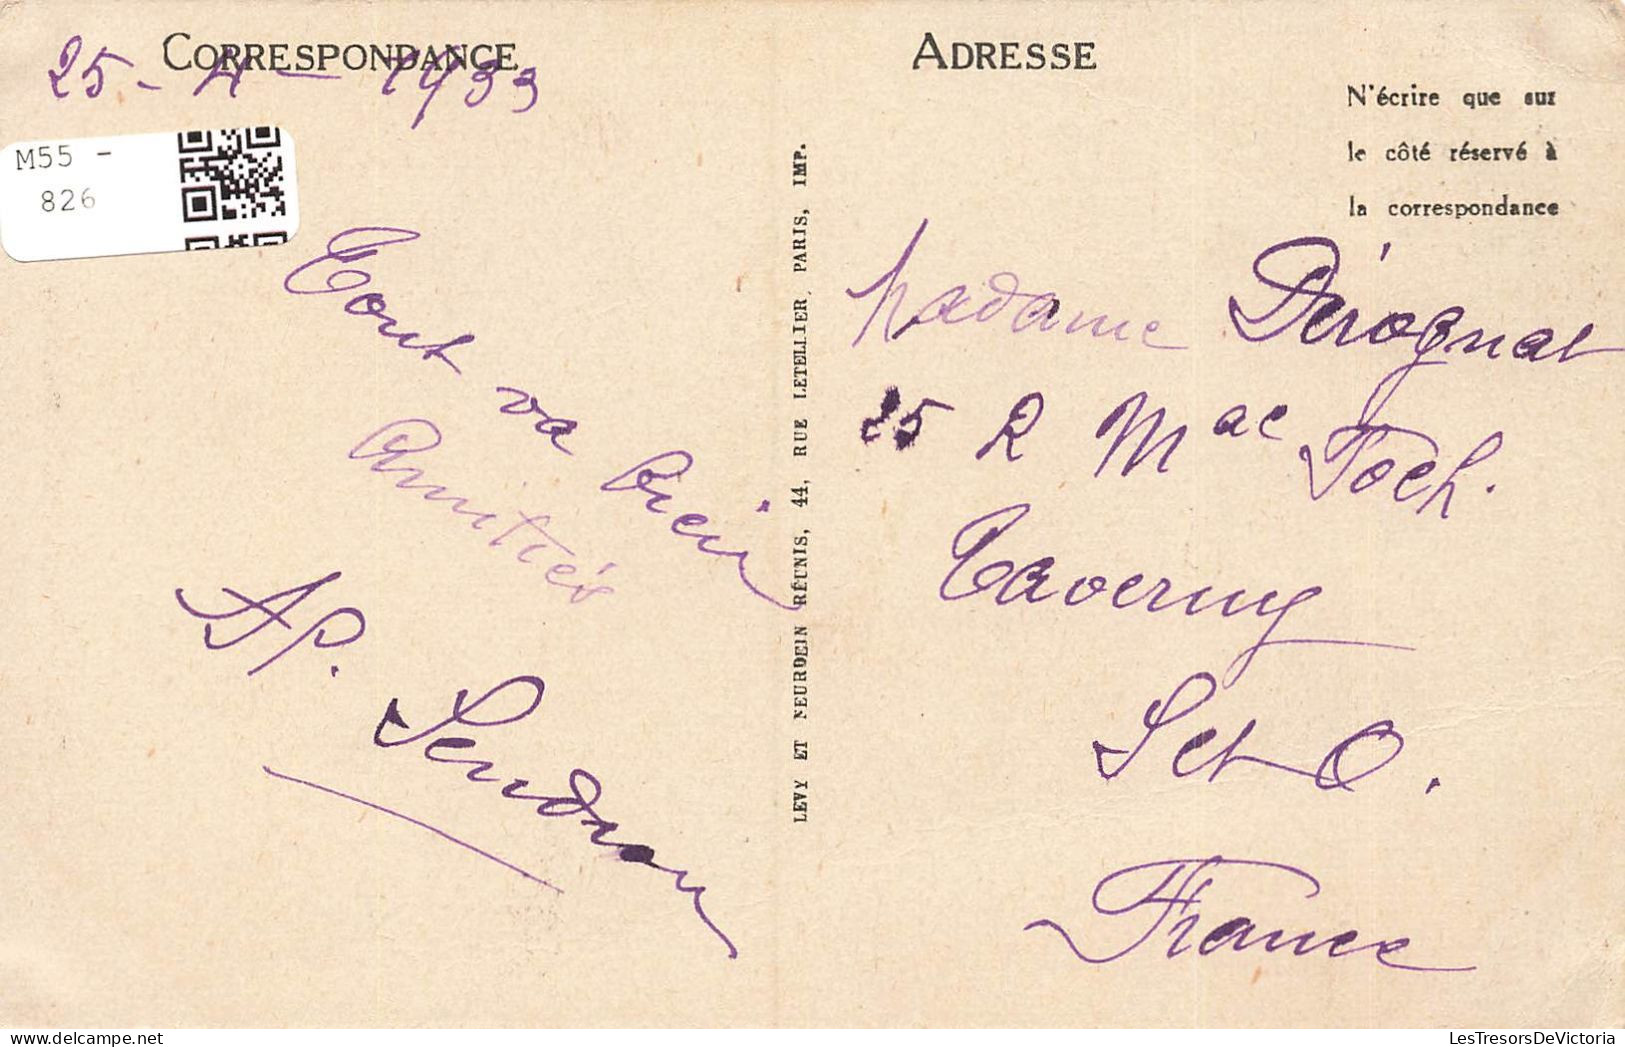 CORRESPONDANCE
25 - 4 - 1933
M55 -
826
Tout va bien
Amitiés
AP. Sendrau
LEVY ET NEURDEIN RÉUNIS, 44, RUE LETELLIER, PARIS, IMP.
ADRESSE
N'écrire que sur
le côté réservé à
la correspondance
Madame Dérognat
25 R Mac Foch.
Taverny
S et O.
France
LesTresorsDeVictoria